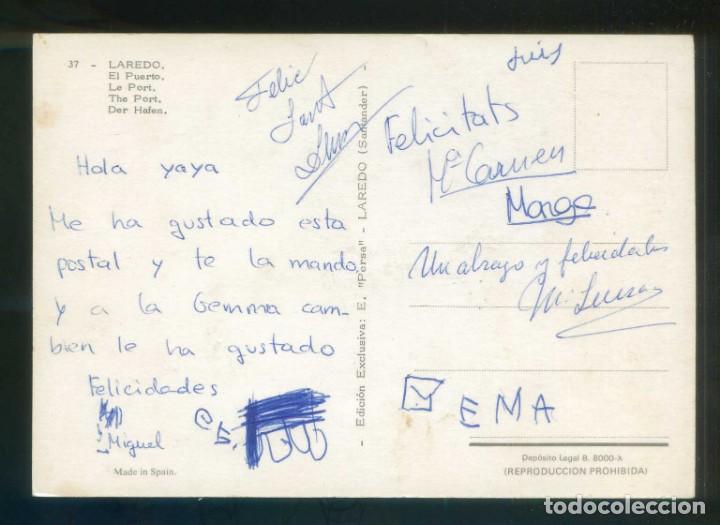 37 - LAREDO.
El Puerto.
Le Port.
The Port.
Der Hafen.
Felic
Sant
Hola yaya
Me ha gustado esta
postal y te la mando
y a la Gemma cam-
bien le ha gustado
Felicidades
Miguel
Made in Spain.
- Edición Exclusiva: E. "Persa" - LAREDO (Santander)
Luis
Felicitats
Mª Carmen
Monge
Un abrazo y felicidades
Mª Luisa
Y EMA
Depósito Legal B. 8000-X
(REPRODUCCION PROHIBIDA)
todocoleccion